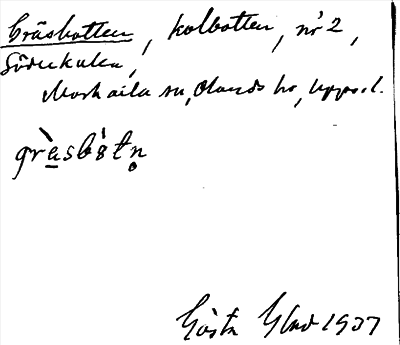 Gräsbotten, kolbotten, nr 2,
Söderkulen,
Morkarla sn, Olands hd, Uppsal.
gràsbòtn
Gösta 1937